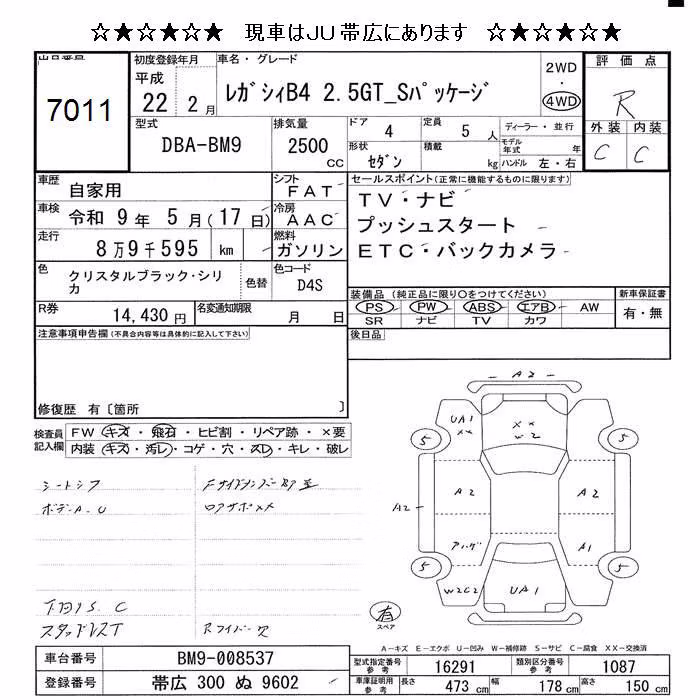 ☆★☆★☆★☆ 現車はJU帯広にあります ☆★☆★☆★☆
初度登録年月 車名・グレード 2WD ・ 4WD 評価点
7011
平成 22 2月
レガシィB4 2.5GT_Sパッケージ
R
型式 DBA-BM9
排気量 2500 CC
ドア 4 定員 5 人 ディーラー・並行
形状 セダン 積載 kg モデル年式 年 ハンドル 左・右
外装 内装
C C
車歴 自家用
シフト FAT
セールスポイント(正常に機能するものに限ります)
車検 令和 9年 5月(17日)
冷房 AAC
TV・ナビ
プッシュスタート
ETC・バックカメラ
走行 8万9千595 km
燃料 ガソリン
色 クリスタルブラック・シリカ 色替
色コード D4S
装備品 (純正品に限り○をつけてください) 新車保証書
PS PW ABS エアB AW 有・無
SR ナビ TV カワ
R券 14,430 円
名変通知期限 月 日
注意事項申告欄(不具合内容等は具体的に記入して下さい)
後日品
修復歴 有〔箇所 〕
検査員記入欄
FW キズ・飛石・ヒビ割・リペア跡・×要
内装 キズ・汚レ・コゲ・穴・スレ・キレ・破レ
シートシワ
ボデーA.U
下回りS.C
スタッドレスT
A2
UA1
XX
XX
W2
5 5
A2 A2 A2
A1
5 5
W2C2 UA1
有
スペア
A-キズ E-エクボ U-凹み W-補修跡 S-サビ C-腐食 XX-交換済
車台番号 BM9-008537
型式指定番号 参考 16291 類別区分番号 参考 1087
登録番号 帯広 300 ぬ 9602
車庫証明用 参考 長さ 473 cm 幅 178 cm 高さ 150 cm